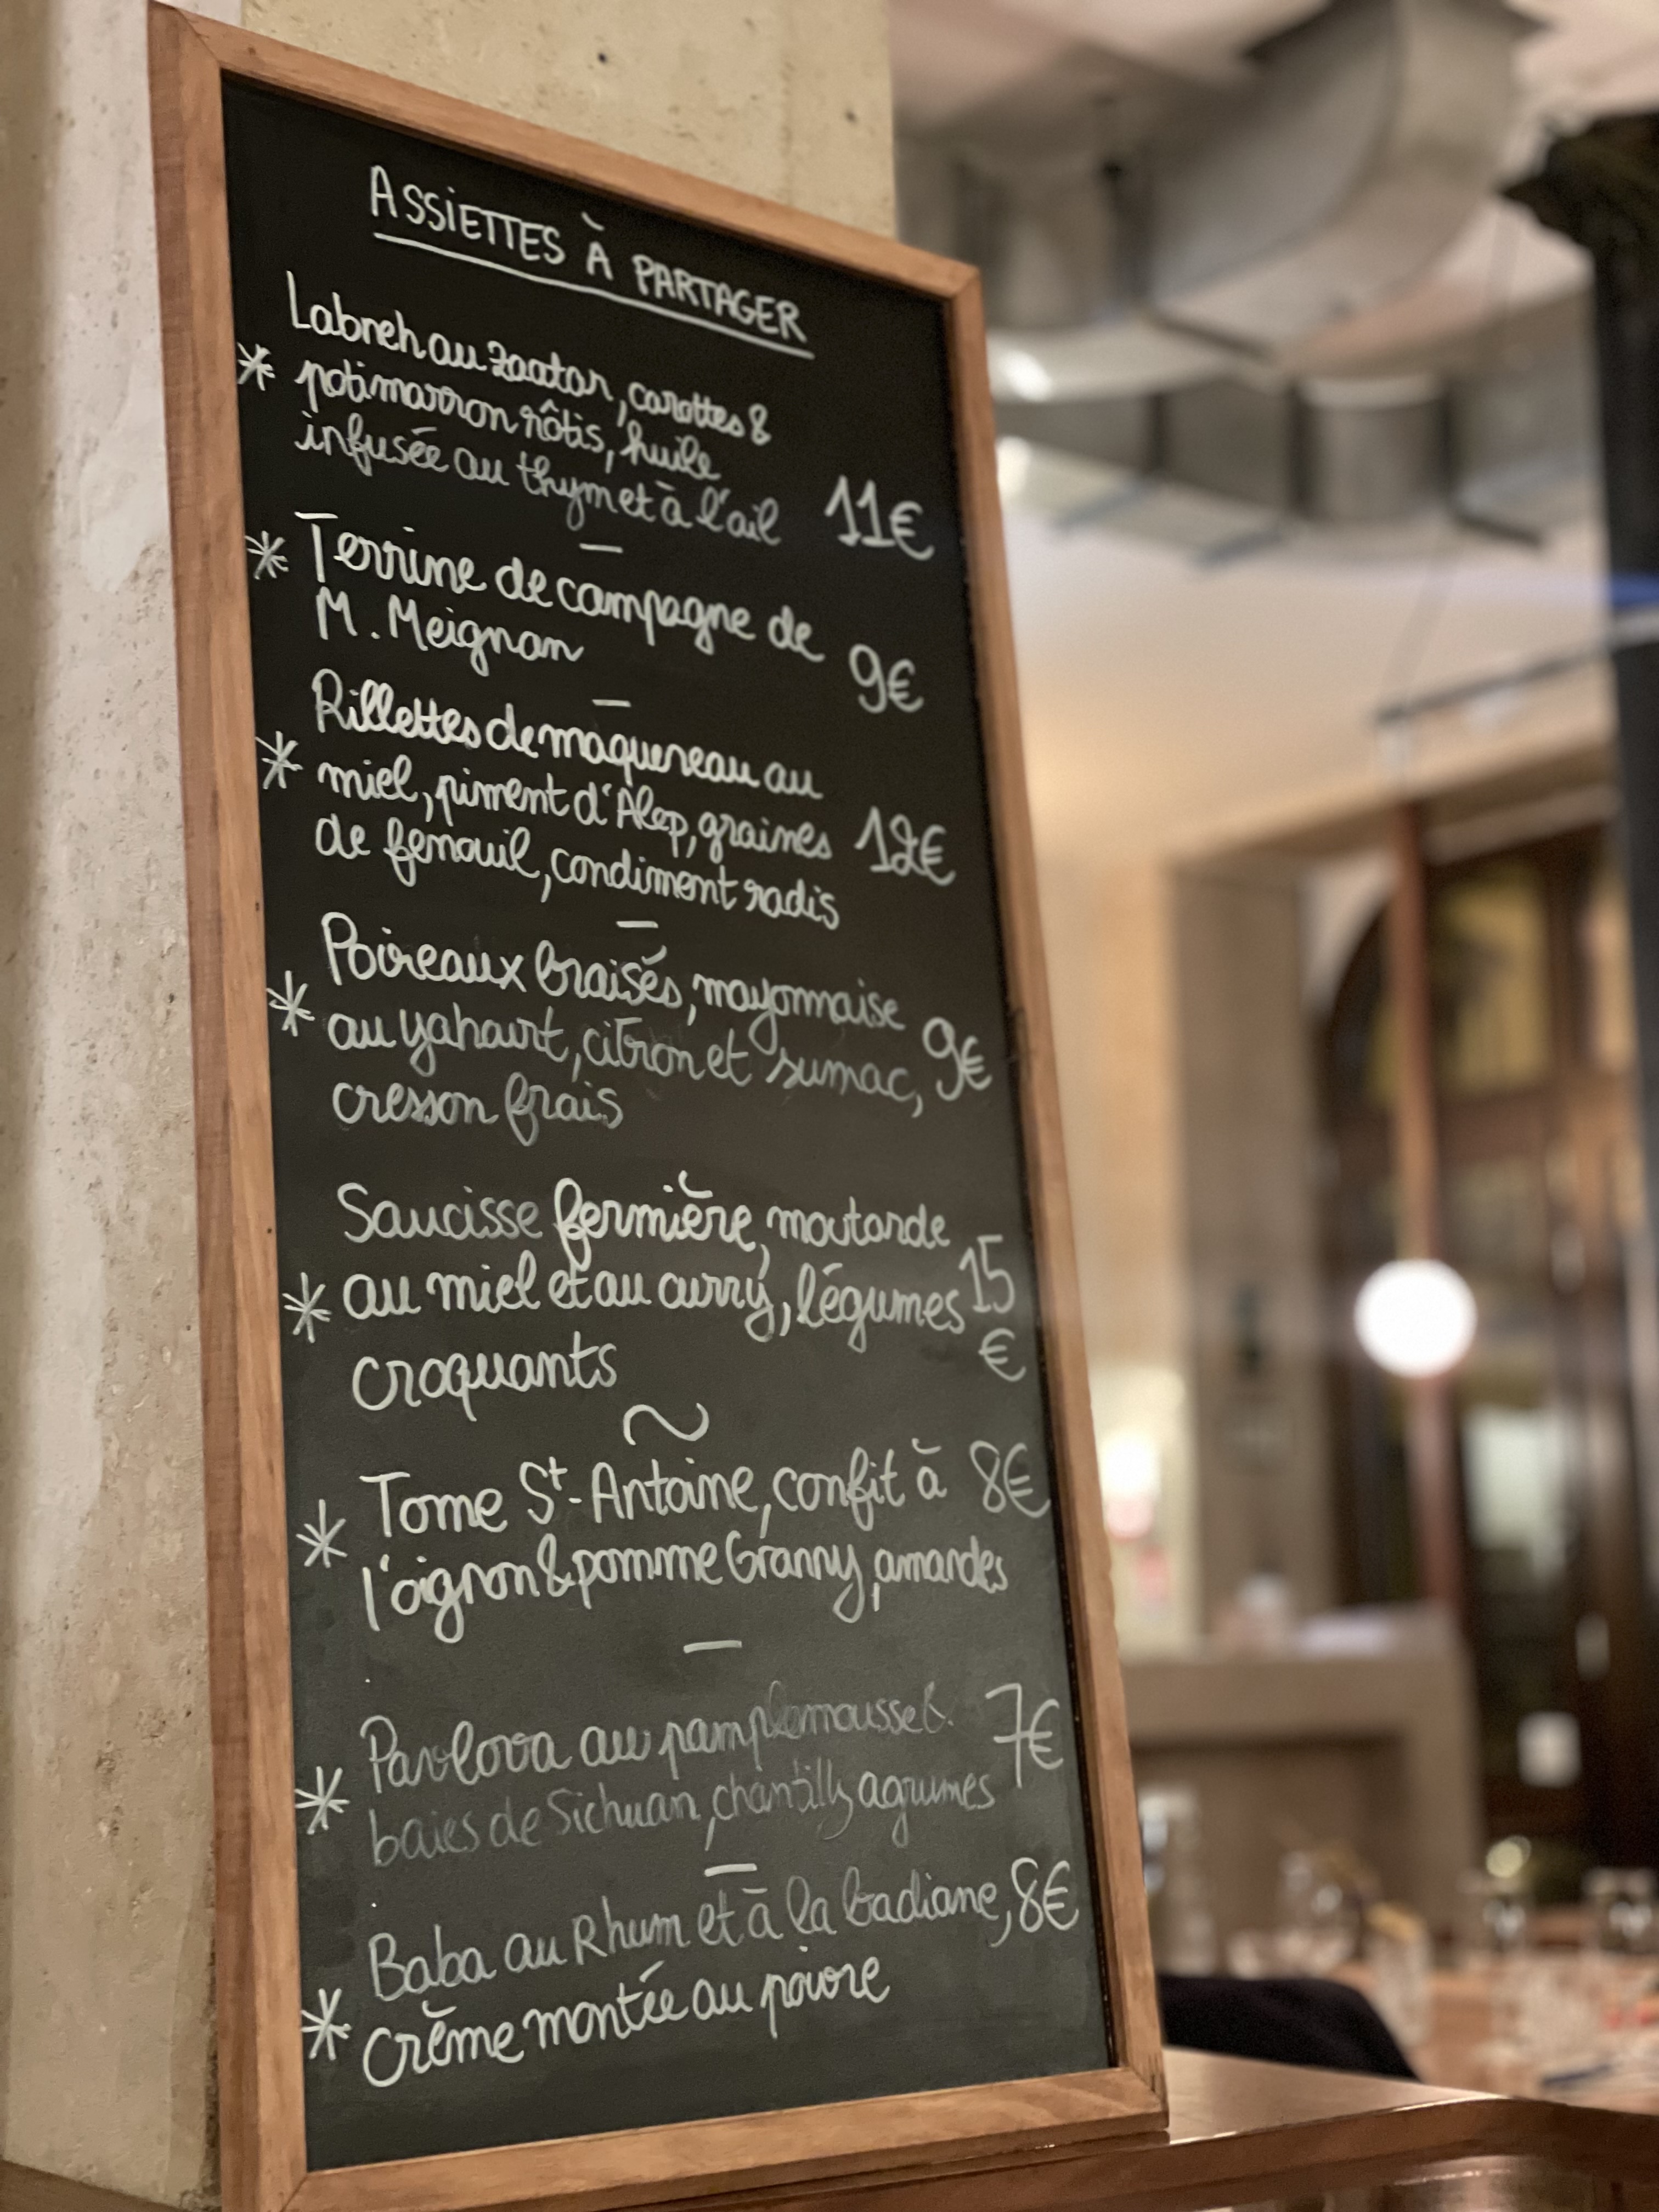 ASSIETTES À PARTAGER
Labneh au zaatar, carottes &
* potimarron rôtis, huile
infusée au thym et à l'ail 11€
—
* Terrine de campagne de
M. Meignan 9€
—
Rillettes de maquereau au
* miel, piment d'Alep, graines 12€
de fenouil, condiment radis
—
Poireaux braisés, mayonnaise
* au yahourt, citron et sumac, 9€
cresson frais
Saucisse fermière, moutarde
* au miel et au curry, légumes 15
croquants €
~
* Tome St-Antoine, confit à 8€
l'oignon & pomme Granny, amandes
—
Pavlova au pamplemousse & 7€
* baies de Sichuan, chantilly agrumes
—
Baba au Rhum et à la badiane, 8€
* crème montée au poivre